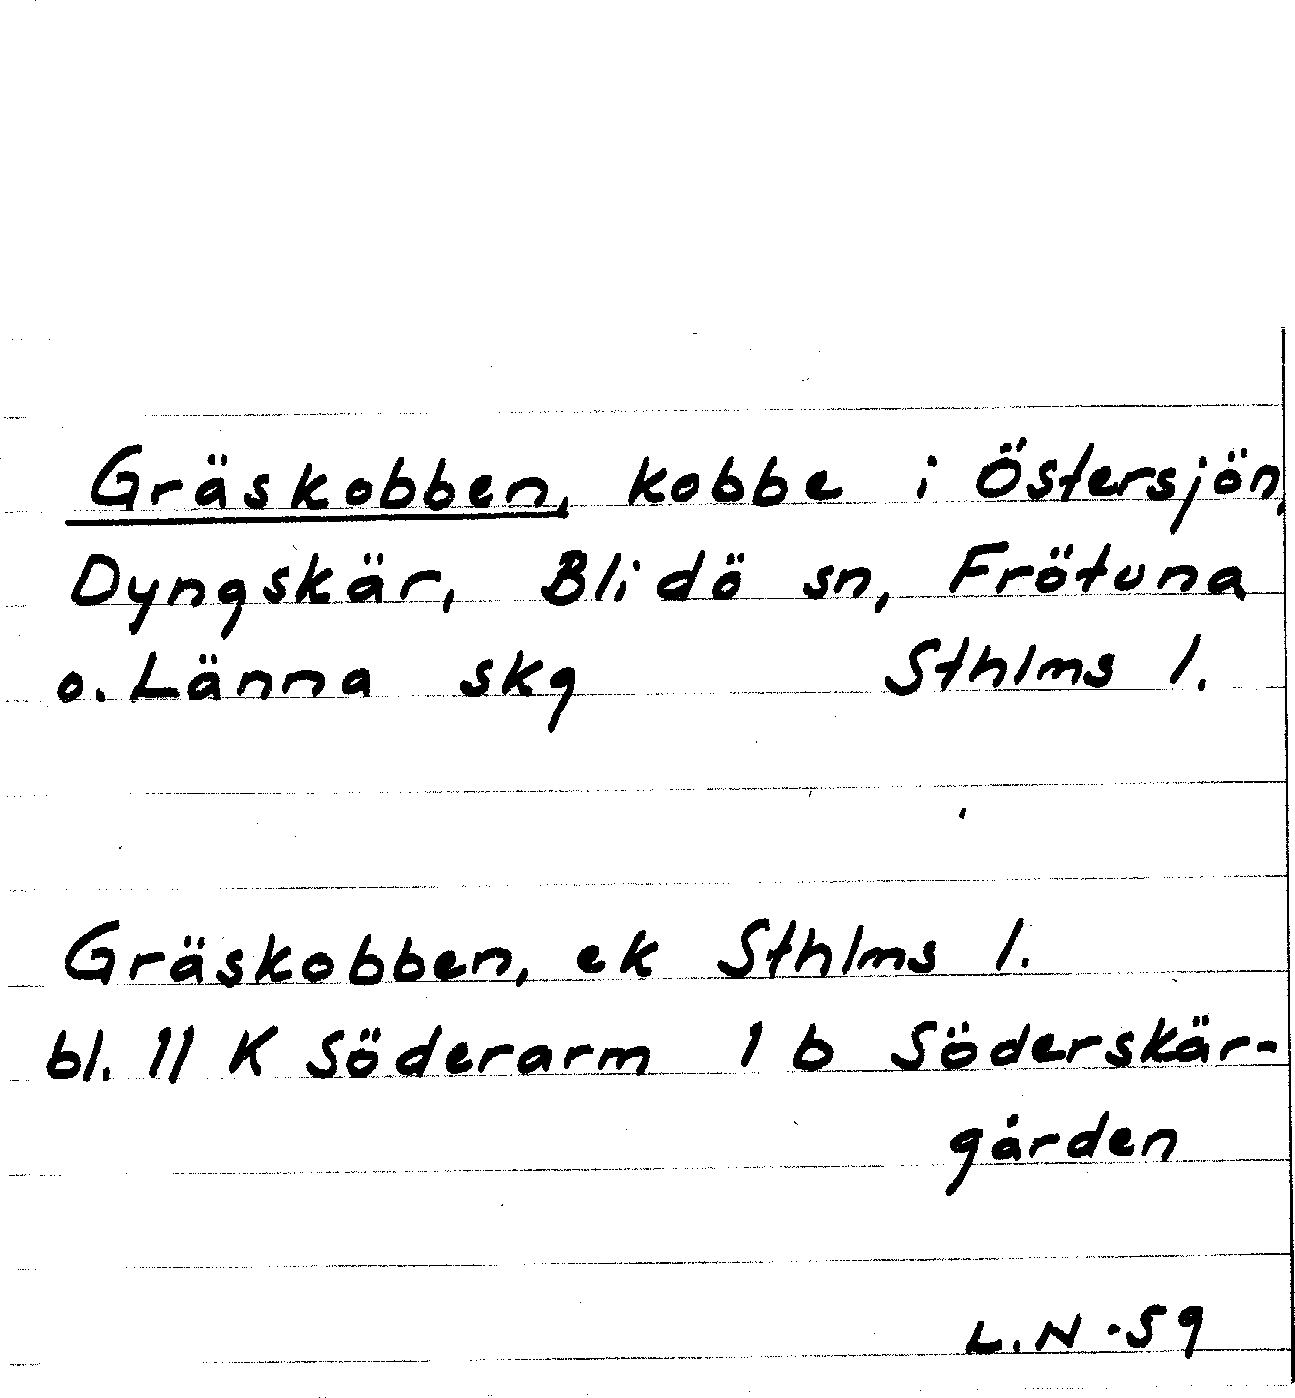 Gräskobben, kobbe i Östersjön,
Dyngskär, Blidö sn, Frötuna
o. Länna skg Sthlms l.
Gräskobben, ek Sthlms l.
bl. 11 K Söderarm 1 b Söderskär-
gården
L.N -59